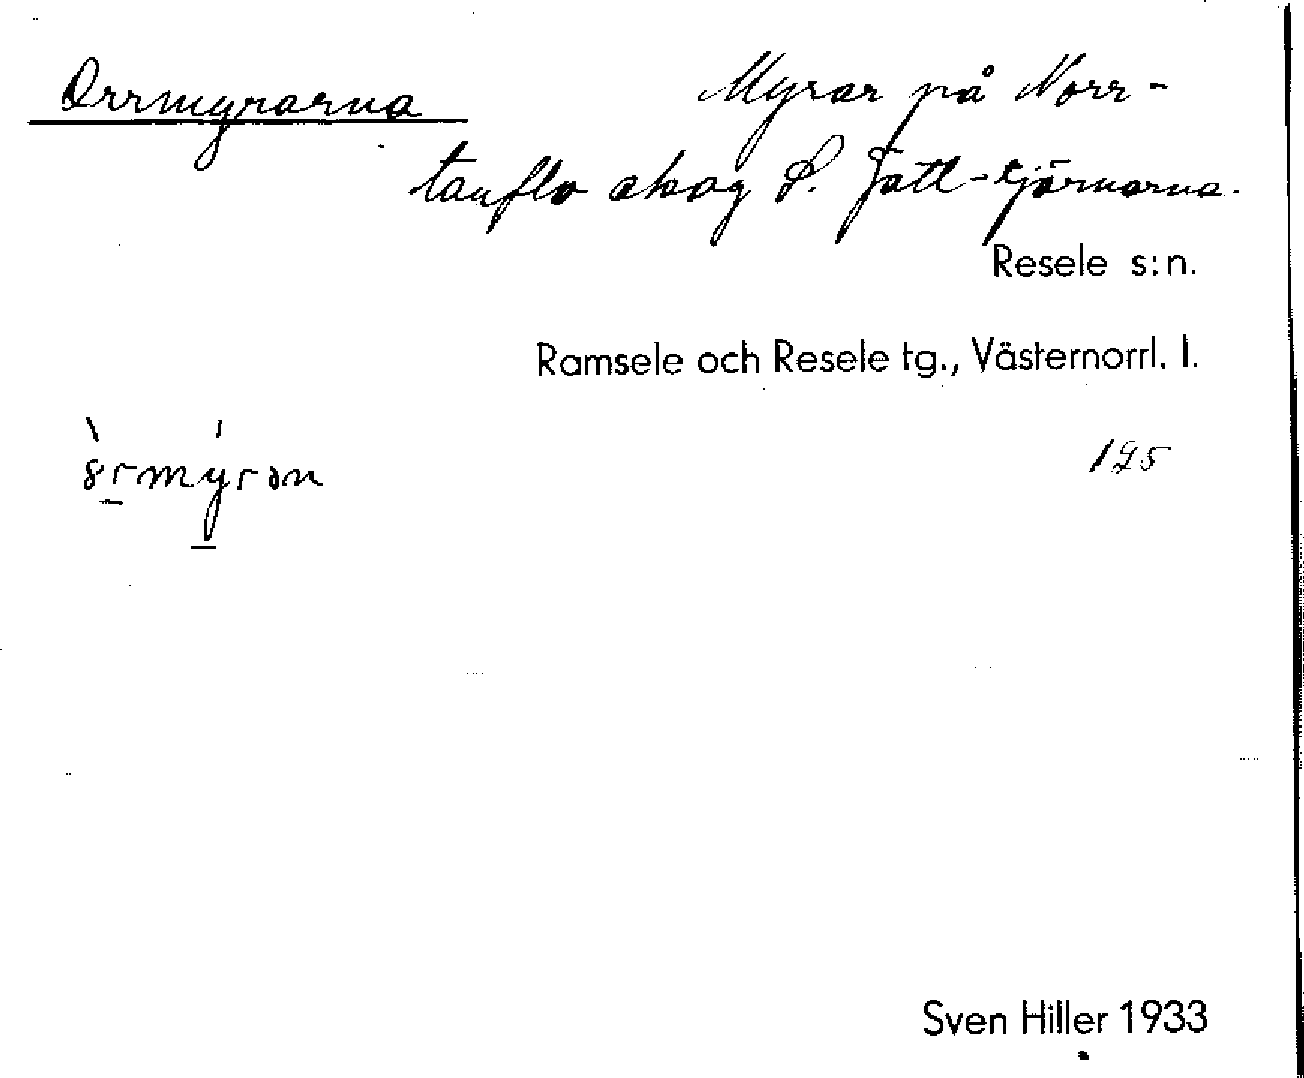 Orrmyrarna Myrar på Norr-
tanflo skog S. Jätt-tjärnarna.
Resele s:n.
Ramsele och Resele tg., Västernorrl. l.
125
Sven Hiller 1933